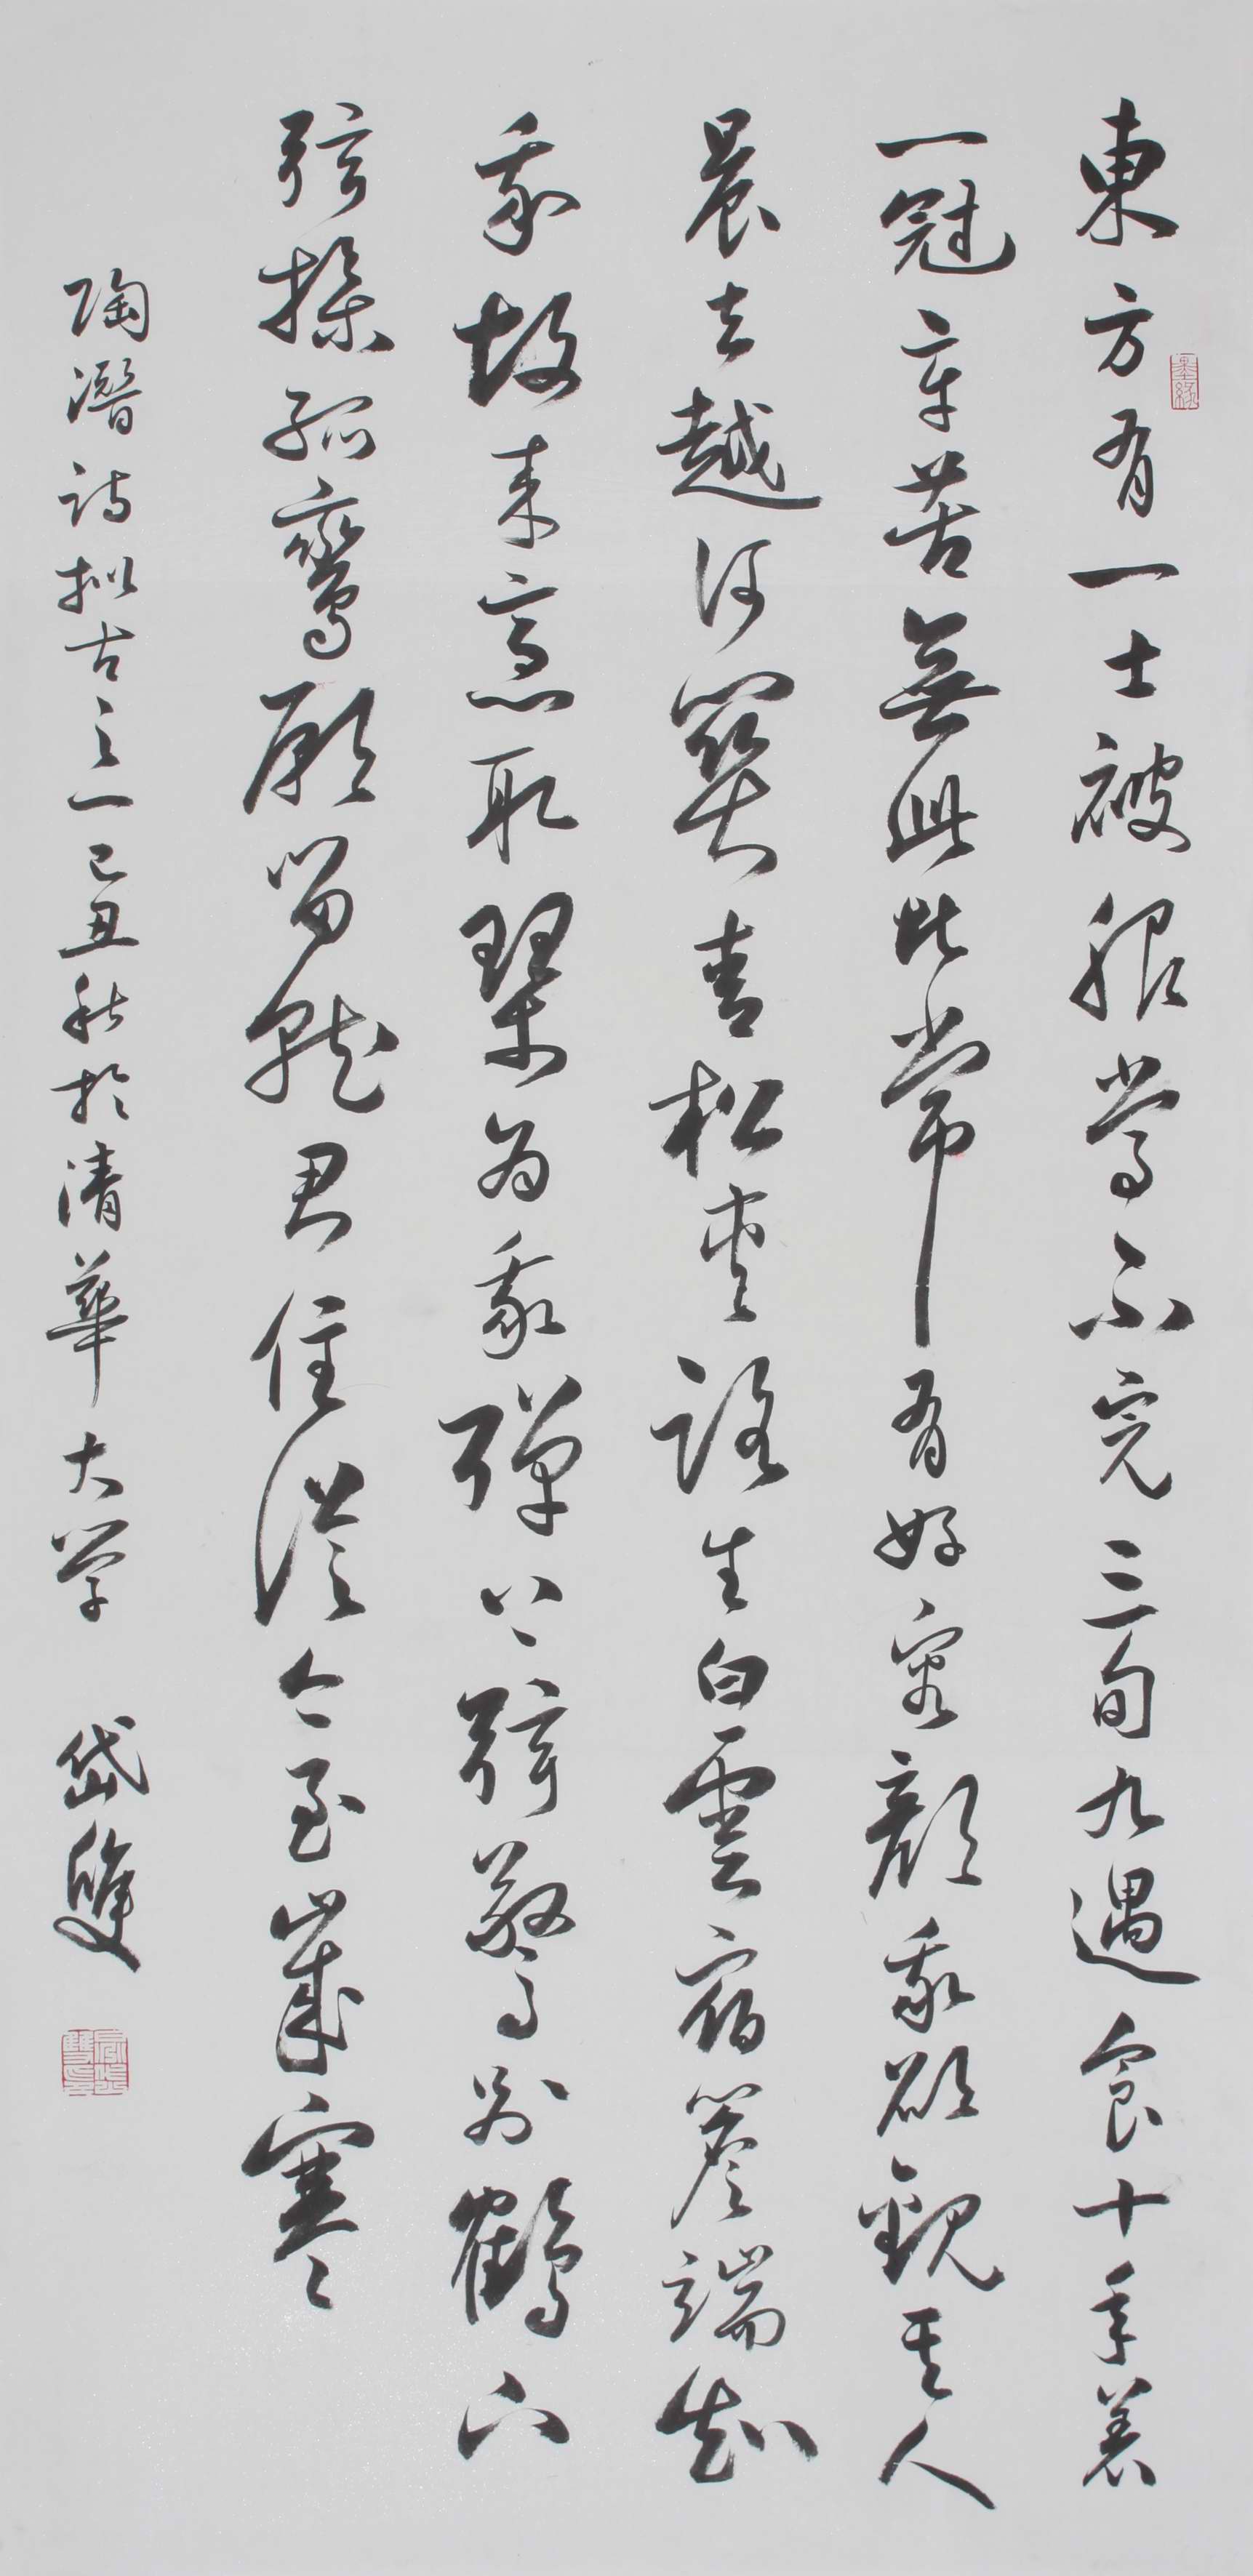 東方有一士被服常不完三旬九遇食十年著
一冠辛苦無此比常有好容顏我欲觀其人
晨去越河關青松夾路生白雲宿簷端知
我故來意取琴為我彈上弦驚別鶴下
弦操孤鸞願留就君住從今至歲寒
陶潛詩擬古之一己丑秋於清華大学 岱雙
墨緣